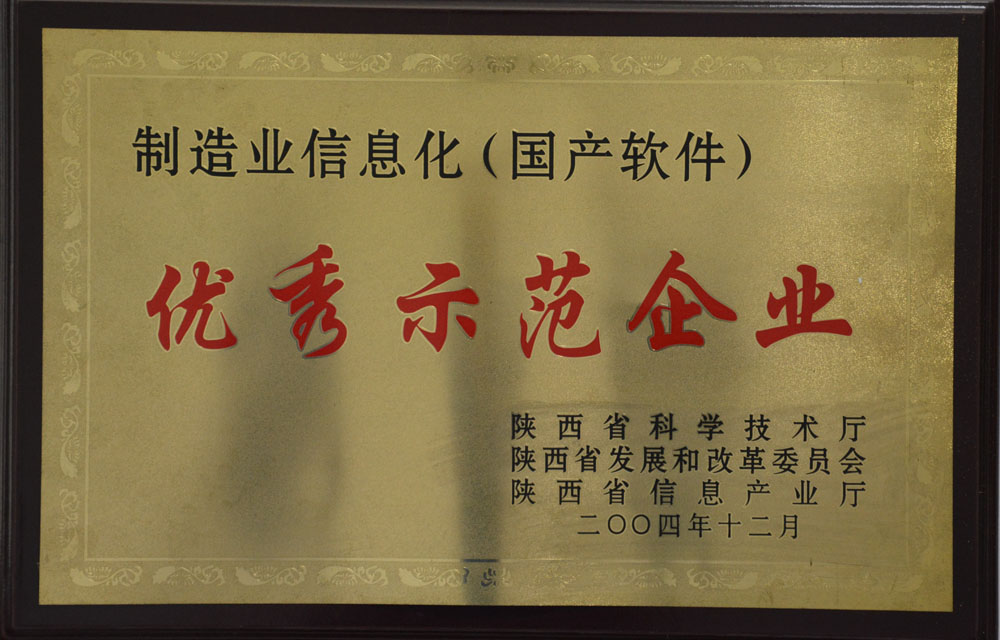 制造业信息化（国产软件）
优秀示范企业
陕西省科学技术厅
陕西省发展和改革委员会
陕西省信息产业厅
二〇〇四年十二月